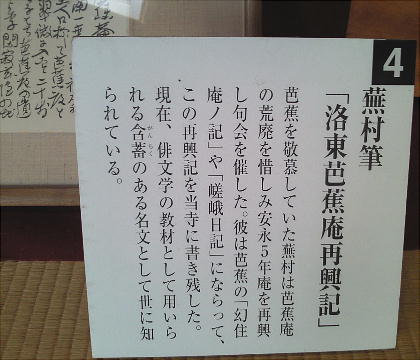 4
蕪村筆
「洛東芭蕉庵再興記」
芭蕉を敬慕していた蕪村は芭蕉庵
の荒廃を惜しみ安永5年庵を再興
し句会を催した。彼は芭蕉の「幻住
庵ノ記」や「嵯峨日記」にならって、
この再興記を当寺に書き残した。
現在、俳文学の教材として用いら
れる含蓄のある名文として世に知
られている。
がんちく